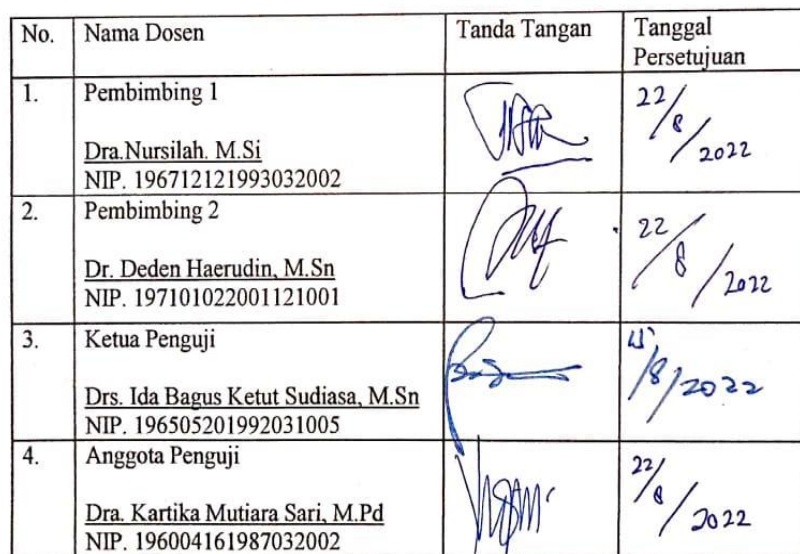 No. Nama Dosen Tanda Tangan Tanggal
Persetujuan
1. Pembimbing 1
22/8/2022
Dra.Nursilah. M.Si
NIP. 196712121993032002
2. Pembimbing 2
22/8/2022
Dr. Deden Haerudin, M.Sn
NIP. 197101022001121001
3. Ketua Penguji
/8/2022
Drs. Ida Bagus Ketut Sudiasa, M.Sn
NIP. 196505201992031005
4. Anggota Penguji
22/8/2022
Dra. Kartika Mutiara Sari, M.Pd
NIP. 196004161987032002